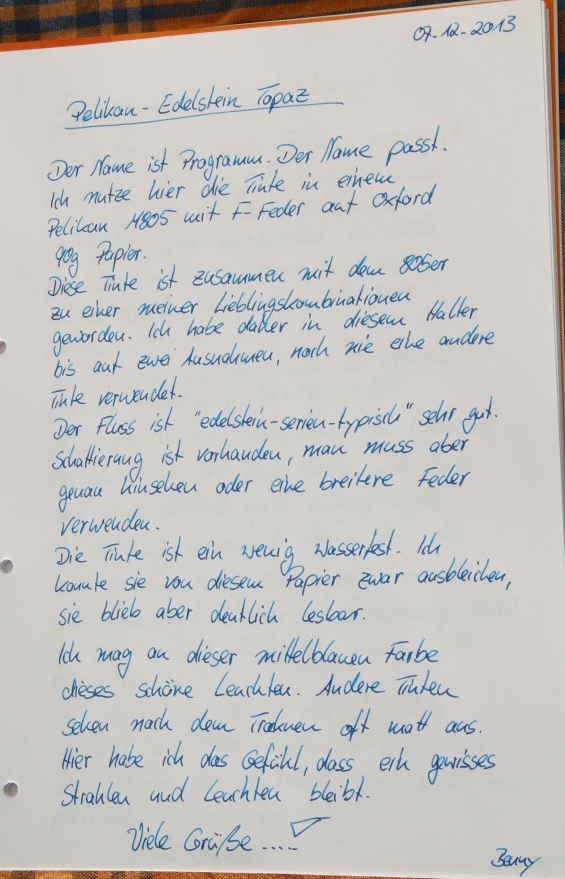 07-12-2013
Pelikan-Edelstein Topaz
Der Name ist Programm. Der Name passt.
Ich nutze hier die Tinte in einem
Pelikan M805 mit F-Feder auf Oxford
90g Papier.
Diese Tinte ist zusammen mit dem 805er
zu einer meiner Lieblingskombinationen
geworden. Ich habe daher in diesem Halter
bis auf zwei Ausnahmen, noch nie eine andere
Tinte verwendet.
Der Fluss ist "edelstein-serien-typisch" sehr gut.
Schattierung ist vorhanden, man muss aber
genau hinsehen oder eine breitere Feder
verwenden.
Die Tinte ist ein wenig wasserfest. Ich
konnte sie von diesem Papier zwar ausbleichen,
sie blieb aber deutlich lesbar.
Ich mag an dieser mittelblauen Farbe
dieses schöne Leuchten. Andere Tinten
sehen nach dem Trocknen oft matt aus.
Hier habe ich das Gefühl, dass ein gewisses
Strahlen und Leuchten bleibt.
Viele Grüße ....
Benny